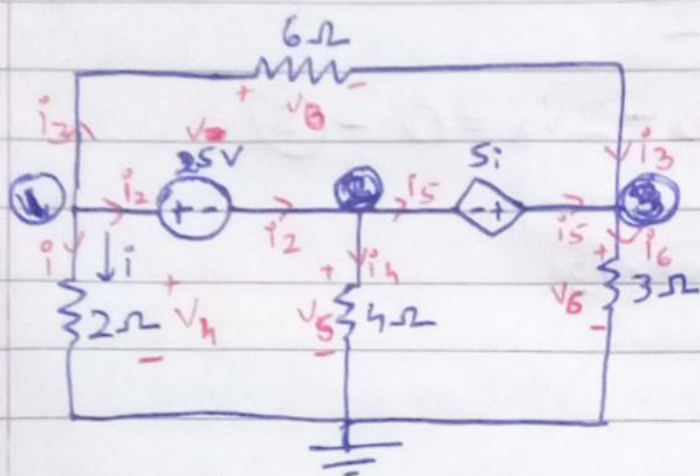 6Ω
+ V3 -
i3
25V
5i
i3
1
i2
+ -
i2
2
i5
- +
i5
3
i
i
i4
i6
2Ω
+ V4 -
+ V5 -
4Ω
+ V6 -
3Ω